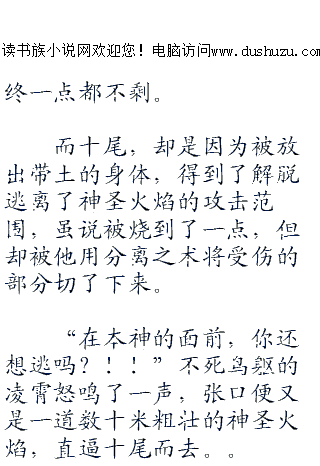 读书族小说网欢迎您！电脑访问www.dushuzu.com
终一点都不剩。
而十尾，却是因为被放
出带土的身体，得到了解脱
逃离了神圣火焰的攻击范
围，虽说被烧到了一点，但
却被他用分离之术将受伤的
部分切了下来。
“在本神的面前，你还
想逃吗？！！”不死鸟躯的
凌霄怒鸣了一声，张口便又
是一道数十米粗壮的神圣火
焰，直逼十尾而去。。